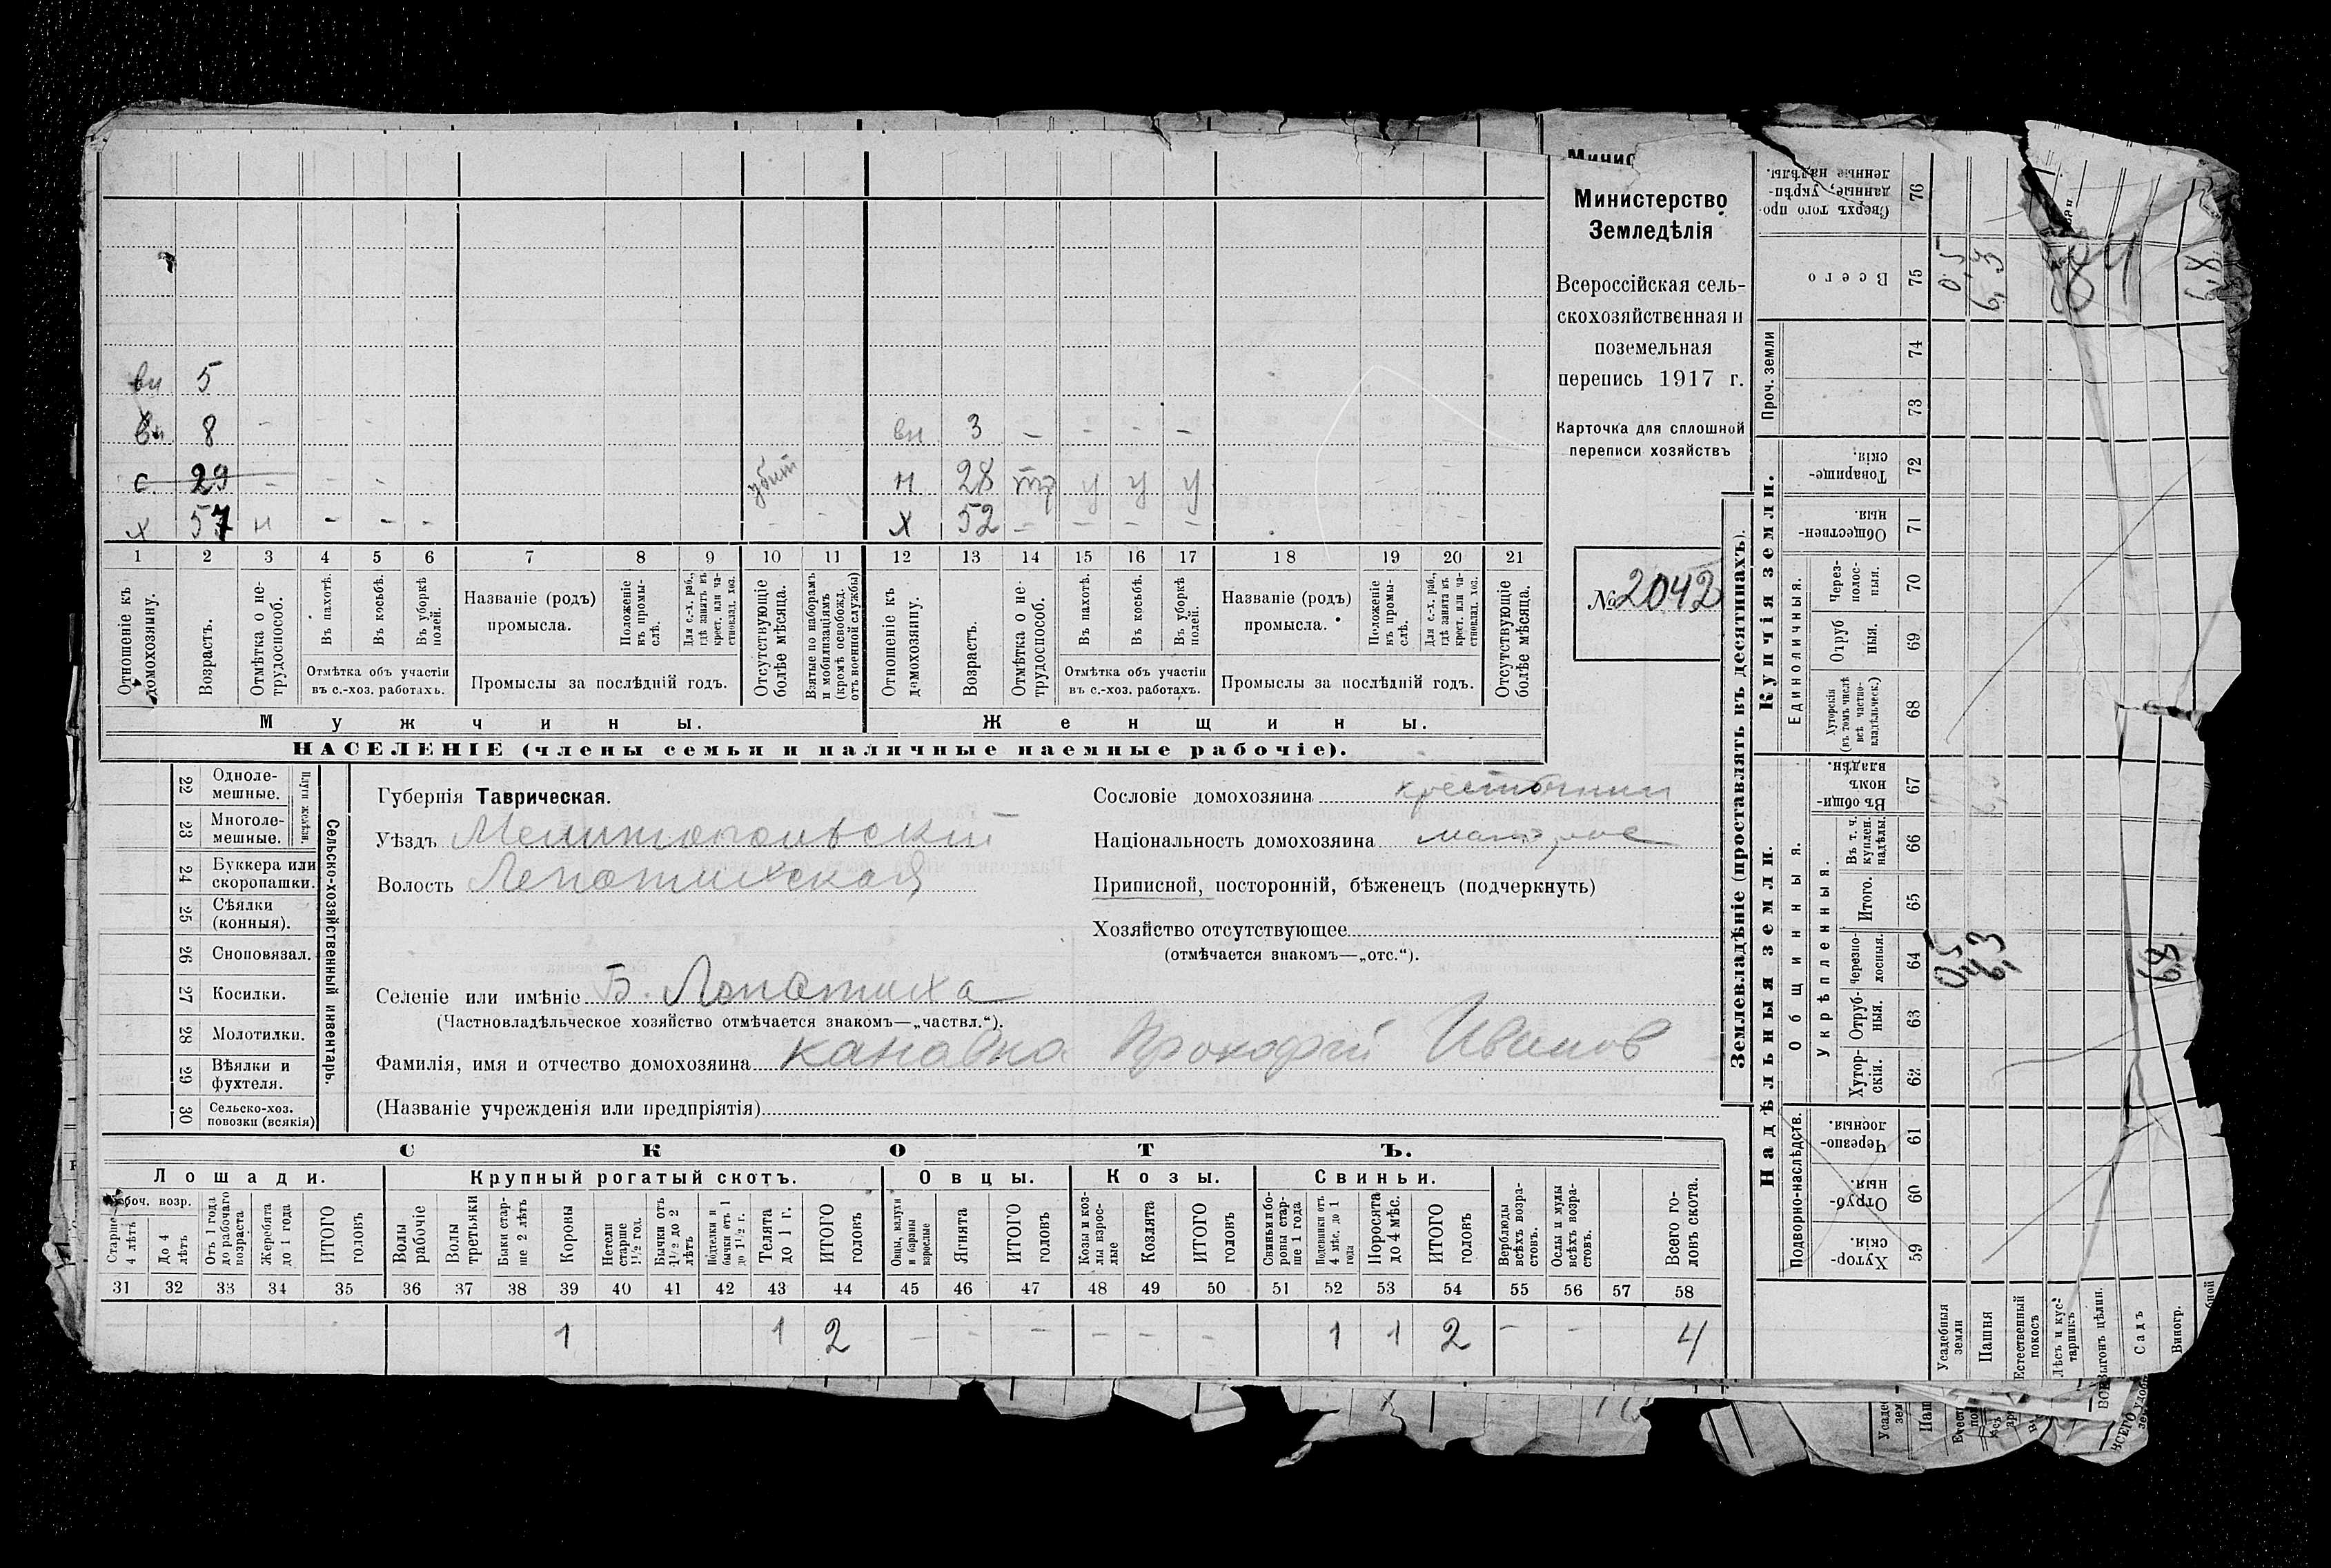 Министерство
Земледѣлія
Всероссійская сель-
скохозяйственная и
поземельная
перепись 1917 г.
Карточка для сплошной
переписи хозяйствъ
№ 2042
вн 5
вн 8 - - - вн 3 - - - -
с 29 - - - - убит н 28 у у у
х 57 н - - - - - х 52 - - - - - -
1 2 3 4 5 6 7 8 9 10 11 12 13 14 15 16 17 18 19 20 21
Отношеніе къ домохозяину.
Возрастъ.
Отмѣтка о не-трудоспособ.
Въ пахотѣ.
Въ косьбѣ.
Въ уборкѣ полей.
Отмѣтка объ участіи
въ с.-хоз. работахъ.
Названіе (родъ)
промысла.
Положеніе въ промы-слѣ.
Для с.-х. раб., гдѣ занятъ въ крест. или ча-стновлад. хоз.
Промыслы за послѣдній годъ.
Отсутствующіе болѣе мѣсяца.
Взятые по наборамъ и мобилизаціямъ (кромѣ освобожд. отъ военной службы)
Отношеніе къ домохозяину.
Возрастъ.
Отмѣтка о не-трудоспособ.
Въ пахотѣ.
Въ косьбѣ.
Въ уборкѣ полей.
Отмѣтка объ участіи
въ с.-хоз. работахъ.
Названіе (родъ)
промысла.
Положеніе въ промы-слѣ.
Для с.-х. раб., гдѣ занята въ крест. или ча-стновлад. хоз.
Промыслы за послѣдній годъ.
Отсутствующіе болѣе мѣсяца.
Мужчины. Женщины.
НАСЕЛЕНІЕ (члены семьи и наличные наемные рабочіе).
22 Одноле-мешные.
23 Многоле-мешные.
Плуги желѣзн.
24 Буккера или скоропашки.
25 Сѣялки (конныя).
26 Сноповязал.
27 Косилки.
28 Молотилки.
29 Вѣялки и фухтеля.
30 Сельско-хоз. повозки (всякія)
Сельско-хозяйственный инвентарь.
Губернія Таврическая.
Уѣздъ Мелитопольскій
Волость Лепатихская
Селеніе или имѣніе Б. Лопатиха
(Частновладѣльческое хозяйство отмѣчается знакомъ—„частвл.“).
Фамилія, имя и отчество домохозяина Канавка Прокофій Иванов
(Названіе учрежденія или предпріятія)
Сословіе домохозяина крестьянин
Національность домохозяина малорос
Приписной, посторонній, бѣженецъ (подчеркнуть)
Хозяйство отсутствующее
(отмѣчается знакомъ—„отс.“).
СКОТЪ.
Лошади. Крупный рогатый скотъ. Овцы. Козы. Свиньи.
Рабоч. возр.
Старше 4 лѣтъ
До 4 лѣтъ
Отъ 1 года до рабочаго возраста
Жеребята до 1 года
ИТОГО головъ
Волы рабочіе
Волы третьяки
Быки стар-ше 2 лѣтъ
Коровы
Нетели старше 1½ год.
Бычки отъ 1½ до 2 лѣтъ
Подтелки и бычки отъ 1 до 1½ г.
Телята до 1 г.
ИТОГО головъ
Овцы, валухи и бараны взрослые
Ягнята
ИТОГО головъ
Козы и коз-лы взрос-лые
Козлята
ИТОГО головъ
Свиньи и бо-ровы стар-ше 1 года
Подсвинки отъ 4 мѣс. до 1 года
Поросята до 4 мѣс.
ИТОГО головъ
Верблюды всѣхъ возра-стовъ.
Ослы и мулы всѣхъ возра-стовъ.
Всего го-ловъ скота.
31 32 33 34 35 36 37 38 39 40 41 42 43 44 45 46 47 48 49 50 51 52 53 54 55 56 57 58
1 1 2 - - - - - - 1 1 2 - - 4
Землевладѣніе (проставлять въ десятинахъ).
Купчія земли.
Надѣльныя земли.
Проч. земли
Единоличныя.
Общинныя.
Укрѣпленныя.
Подворно-наслѣдств.
Сверхъ того про-данные, укрѣп-ленные надѣлы. 76
Всего 75 0,5 6,3 6,8
74
73
Товарище-скія. 72
Обществен-ныя. 71
Через-полос-ныя. 70
Отруб-ныя. 69
Хуторскія (въ томъ числѣ всѣ частно-владѣльческ.) 68
Въ общи-номъ владѣн. 67
Въ т. ч. куплен. надѣлы. 66
Итого. 65
Черезпо-лосныя. 64 0,5 6,3 6,8
Отруб-ныя. 63
Хутор-скія. 62
Черезпо-лосныя. 61
Отруб-ныя. 60
Хутор-скія. 59
Усадебныя земли
Пашня
Естественный покосъ
Лѣсъ и кус-тарникъ
Выгонъ цѣлин.
Садъ
Виногр.